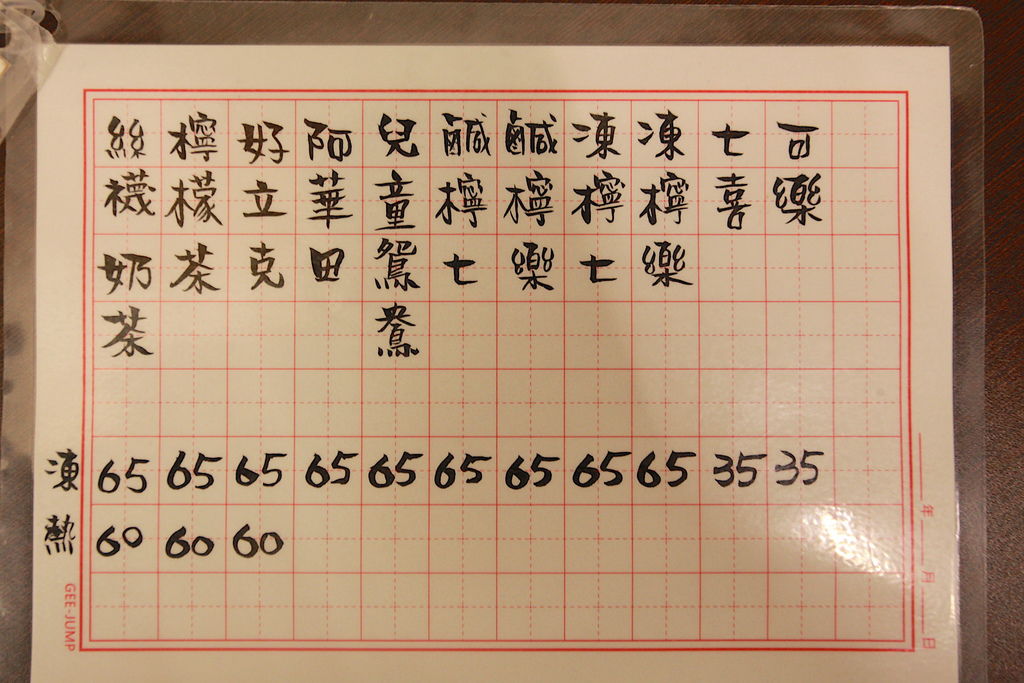 絲襪奶茶
檸檬茶
好立克
阿華田
兒童鴛鴦
鹹檸七
鹹檸樂
凍檸七
凍檸樂
七喜
可樂
凍 65 65 65 65 65 65 65 65 65 35 35
熱 60 60 60
年 月 日
GEE-JUMP